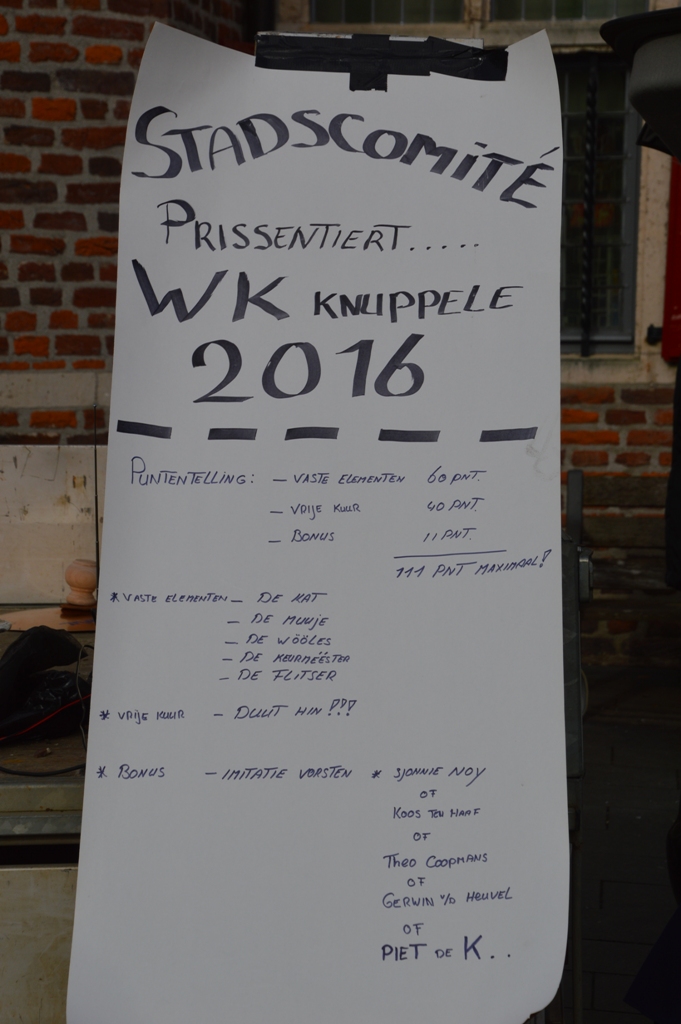 STADSCOMITÉ
PRISSENTIERT.....
WK KNUPPELE
2016
PUNTENTELLING: - VASTE ELEMENTEN 60 PNT.
- VRIJE KUUR 40 PNT.
- BONUS 11 PNT.
111 PNT MAXIMAAL!
* VASTE ELEMENTEN - DE KAT
- DE MUUJE
- DE WÖÖLES
- DE KEURMÉÉSTER
- DE FLITSER
* VRIJE KUUR - DUUT HIN!!!
* BONUS - IMITATIE VORSTEN * SJONNIE NOY
OF
KOOS TEN HAAF
OF
THEO COOPMANS
OF
GERWIN V/D HEUVEL
OF
PIET DE K..